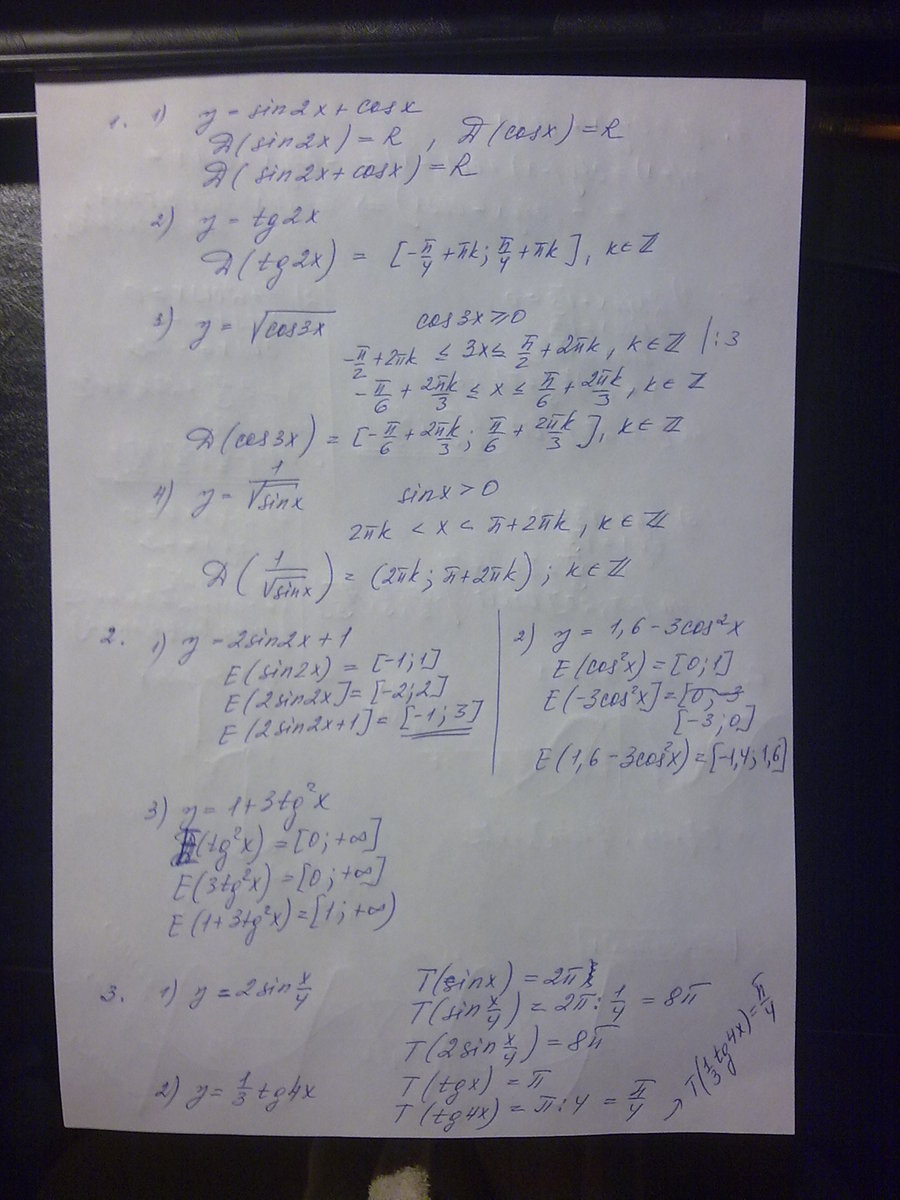 1. 1) y = sin2x + cosx
D(sin2x) = R, D(cosx) = R
D(sin2x + cosx) = R
2) y = tg2x
D(tg2x) = [-π/4 + πk; π/4 + πk], k ∈ Z
3) y = √cos3x cos3x ≥ 0
-π/2 + 2πk ≤ 3x ≤ π/2 + 2πk, k ∈ Z |:3
-π/6 + 2πk/3 ≤ x ≤ π/6 + 2πk/3, k ∈ Z
D(cos3x) = [-π/6 + 2πk/3; π/6 + 2πk/3], k ∈ Z
4) y = 1/√sinx sinx > 0
2πk < x < π + 2πk, k ∈ Z
D(1/√sinx) = (2πk; π + 2πk); k ∈ Z
2. 1) y = 2sin2x + 1
E(sin2x) = [-1;1]
E(2sin2x] = [-2;2]
E(2sin2x+1] = [-1;3]
2) y = 1,6 - 3cos²x
E(cos²x) = [0;1]
E(-3cos²x] = [0;-3
[-3;0]
E(1,6 - 3cos²x) = [-1,4;1,6]
3) y = 1 + 3tg²x
E(tg²x) = [0; +∞]
E(3tg²x) = [0; +∞]
E(1+3tg²x) = [1; +∞)
3. 1) y = 2sin x/4 T(sinx) = 2π
T(sin x/4) = 2π : 1/4 = 8π
T(2sin x/4) = 8π
2) y = 1/3 tg4x T(tgx) = π
T(tg4x) = π:4 = π/4 ↗ T(1/3 tg4x) = π/4